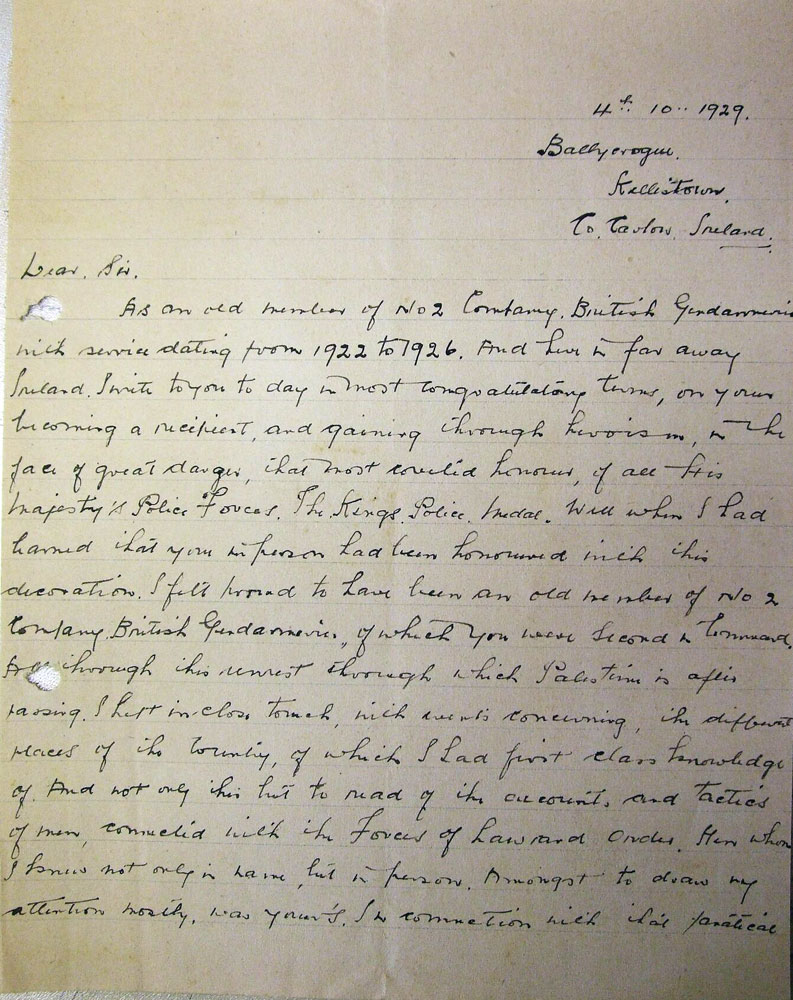 4th 10.. 1929.
Ballycrogue.
Kellistown.
Co. Carlow. Ireland.
Dear. Sir.
As an old member of No 2 Company. British Gendarmerie
with service dating from 1922 to 1926. And here in far away
Ireland. I write to you to day in most congratulatory terms, on your
becoming a recipient, and gaining through heroism, in the
face of great danger, that most coveted honour, of all His
Majesty's Police Forces. The Kings. Police. Medal. Well when I had
learned that you in person had been honoured with this
decoration. I felt proud to have been an old member of No 2
Company. British Gendarmerie, of which you were Second in Command.
All through this unrest through which Palestine is after
passing. I kept in close touch, with events concerning, the different
places of the Country, of which I had first class knowledge
of. And not only this but to read of the accounts and tactics
of men, connected with the Forces of Law and Order. Men whom
I knew not only in name, but in person. Amongst to draw my
attention mostly, was your's. In connection with that fanatical